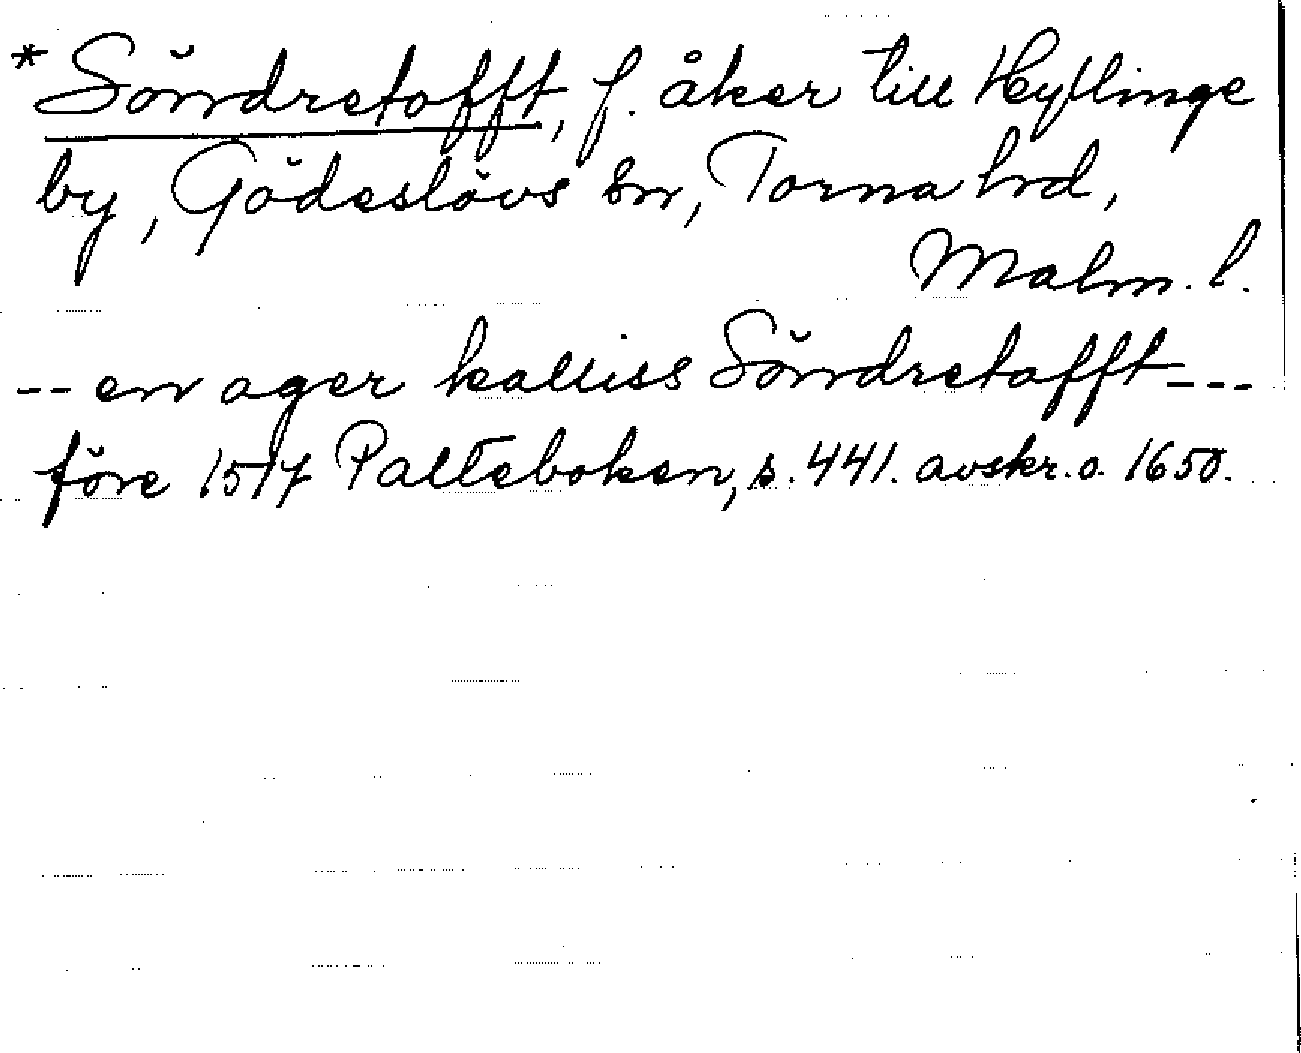 * Söndretofft, f. åker till Heyllinge
by, Gödeslövs sn, Torna hrd,
Malm. l.
-- en ager kalliss Söndretofft ---
före 1517 Palteboken, s. 441. avskr. o. 1650.